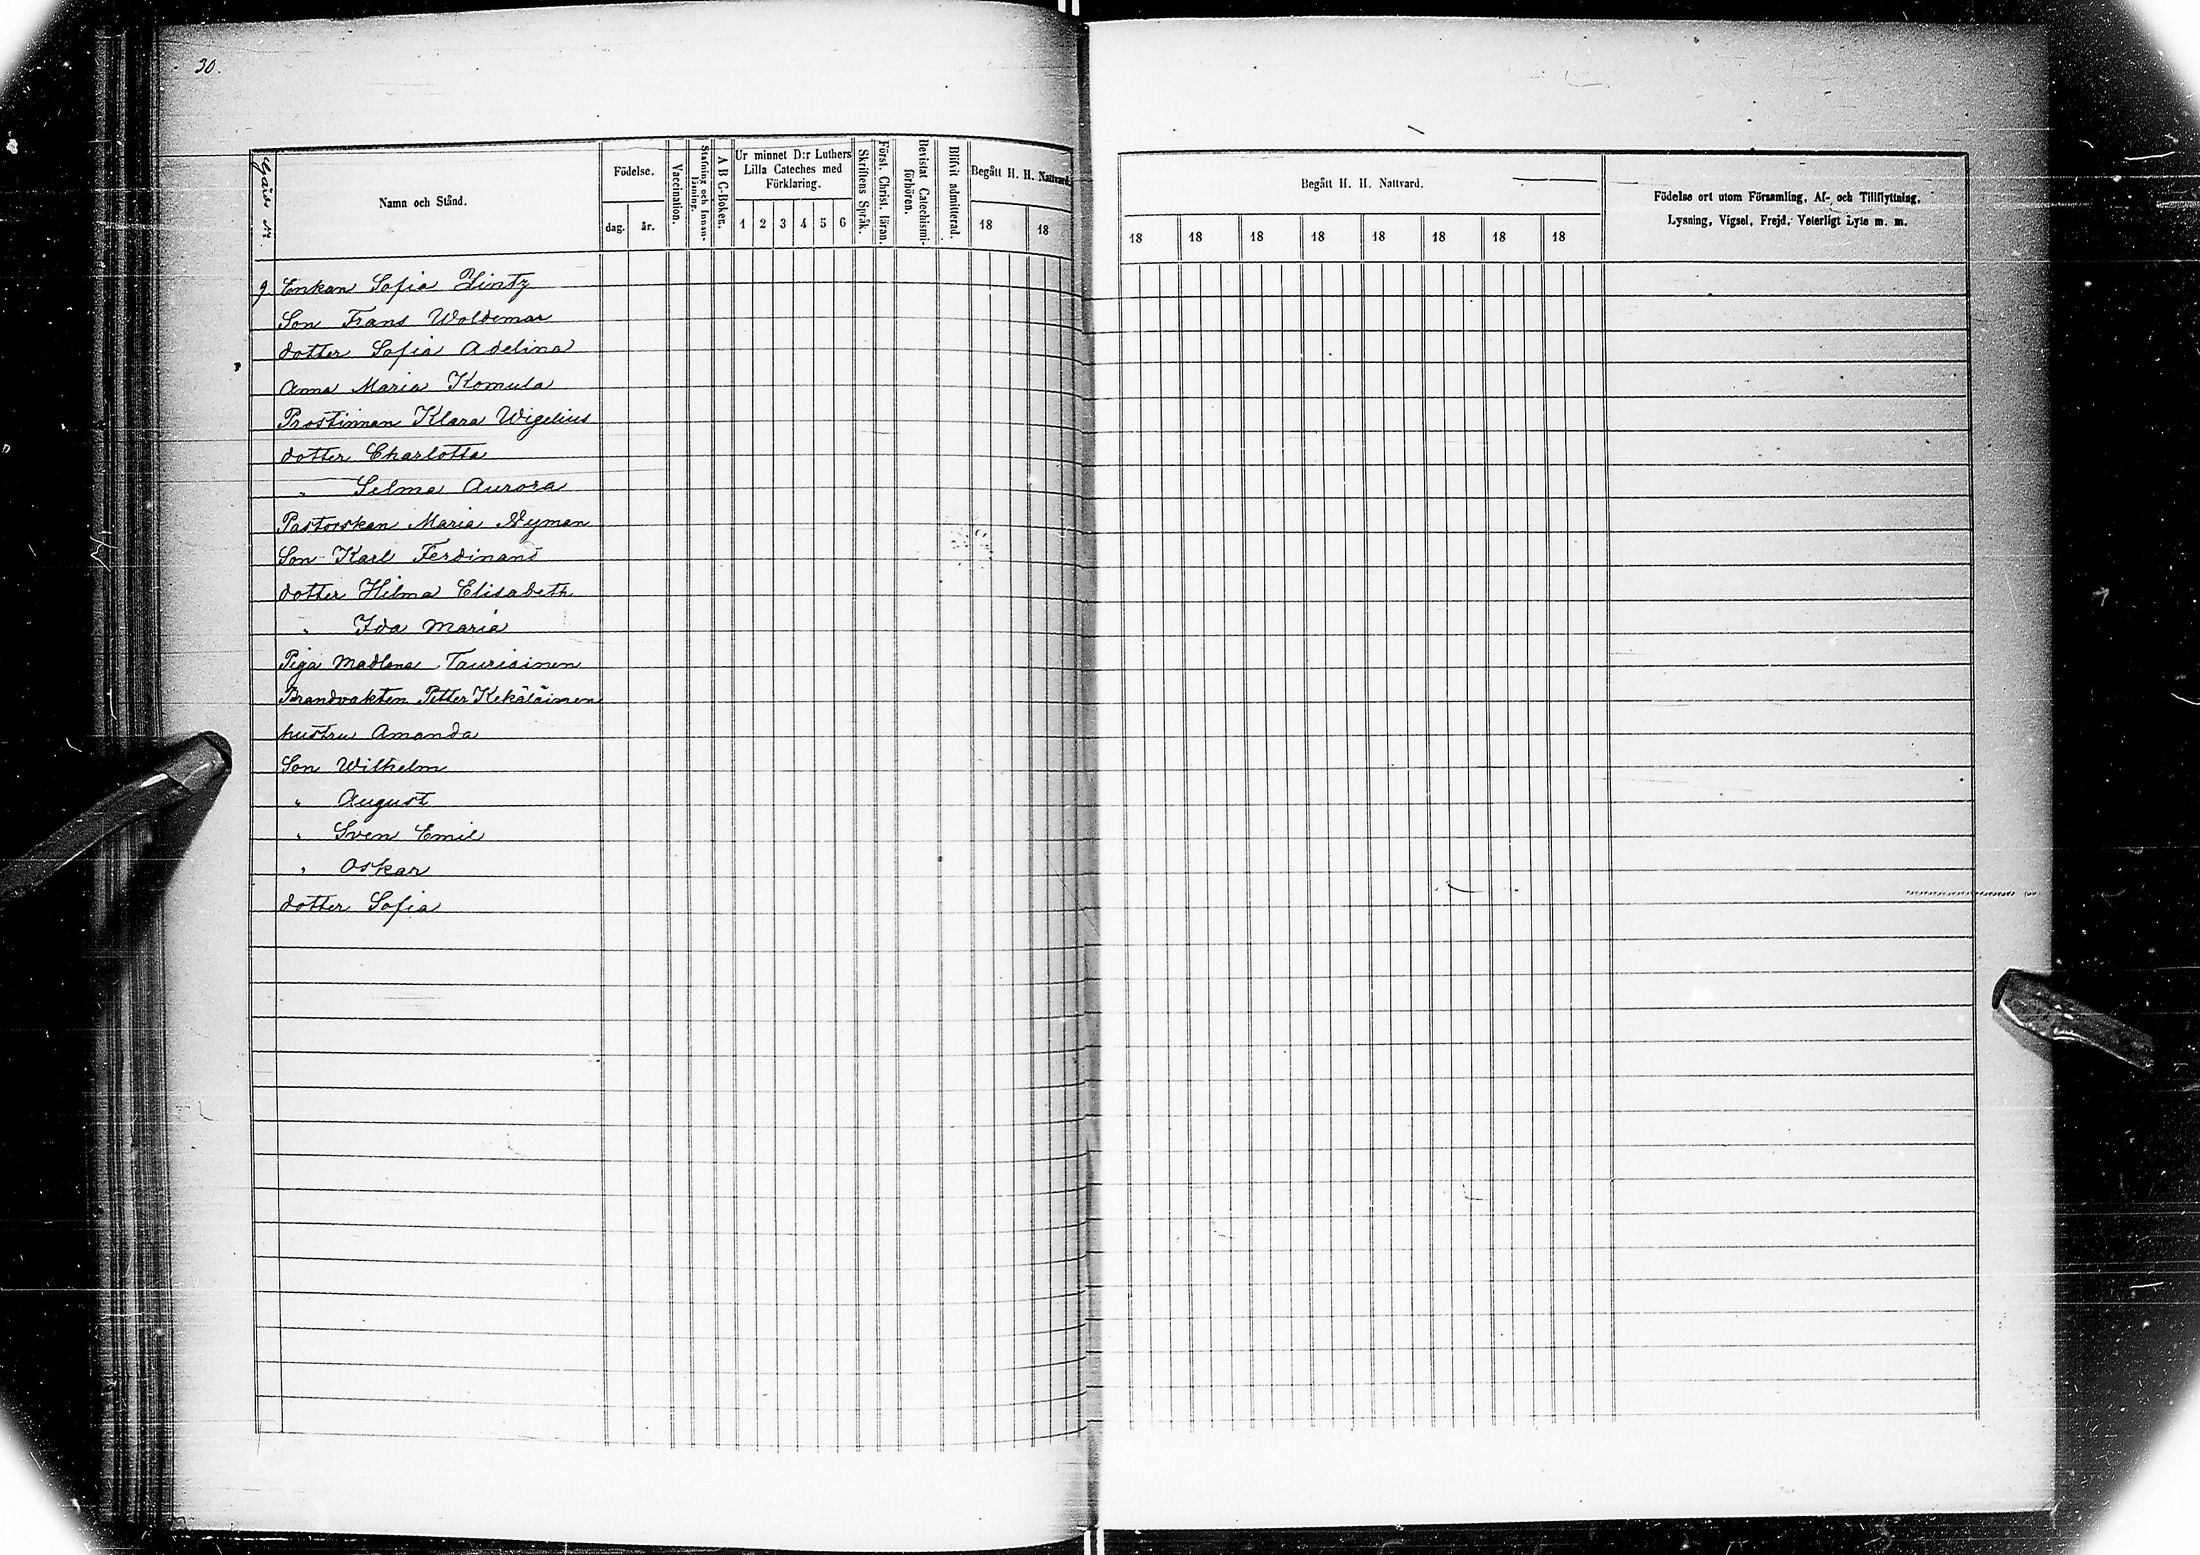 30.
Gårds No.
Namn och Stånd.
Födelse.
dag.
år.
Vaccination.
Stafning och Innan-
läsning.
A B C-Boken.
Ur minnet D:r Luthers
Lilla Cateches med
Förklaring.
1 2 3 4 5 6
Skriftens Språk.
Först. Christ. läran.
Bevistat Catechismi-
förhören.
Blifvit admitterad.
Begått H. H. Nattvard.
18 18
Begått H. H. Nattvard.
18 18 18 18 18 18 18 18
Födelse ort utom Församling, Af- och Tillflyttning,
Lysning, Vigsel, Frejd, Veterligt Lyte m. m.
9 Enkan Sofia Zintz
Son Frans Woldemar
dotter Sofia Adelina
Anna Maria Komula
Prostinnan Klara Wigelius
dotter Charlotta
" Selma Aurora
Pastorskan Maria Nyman
Son Karl Ferdinand
dotter Hilma Elisabeth
" Ida Maria
Piga Madlena Tauriainen
Brandvakten Petter Kekäläinen
hustru Amanda
Son Wilhelm
" August
" Sven Emil
" Oskar
dotter Sofia